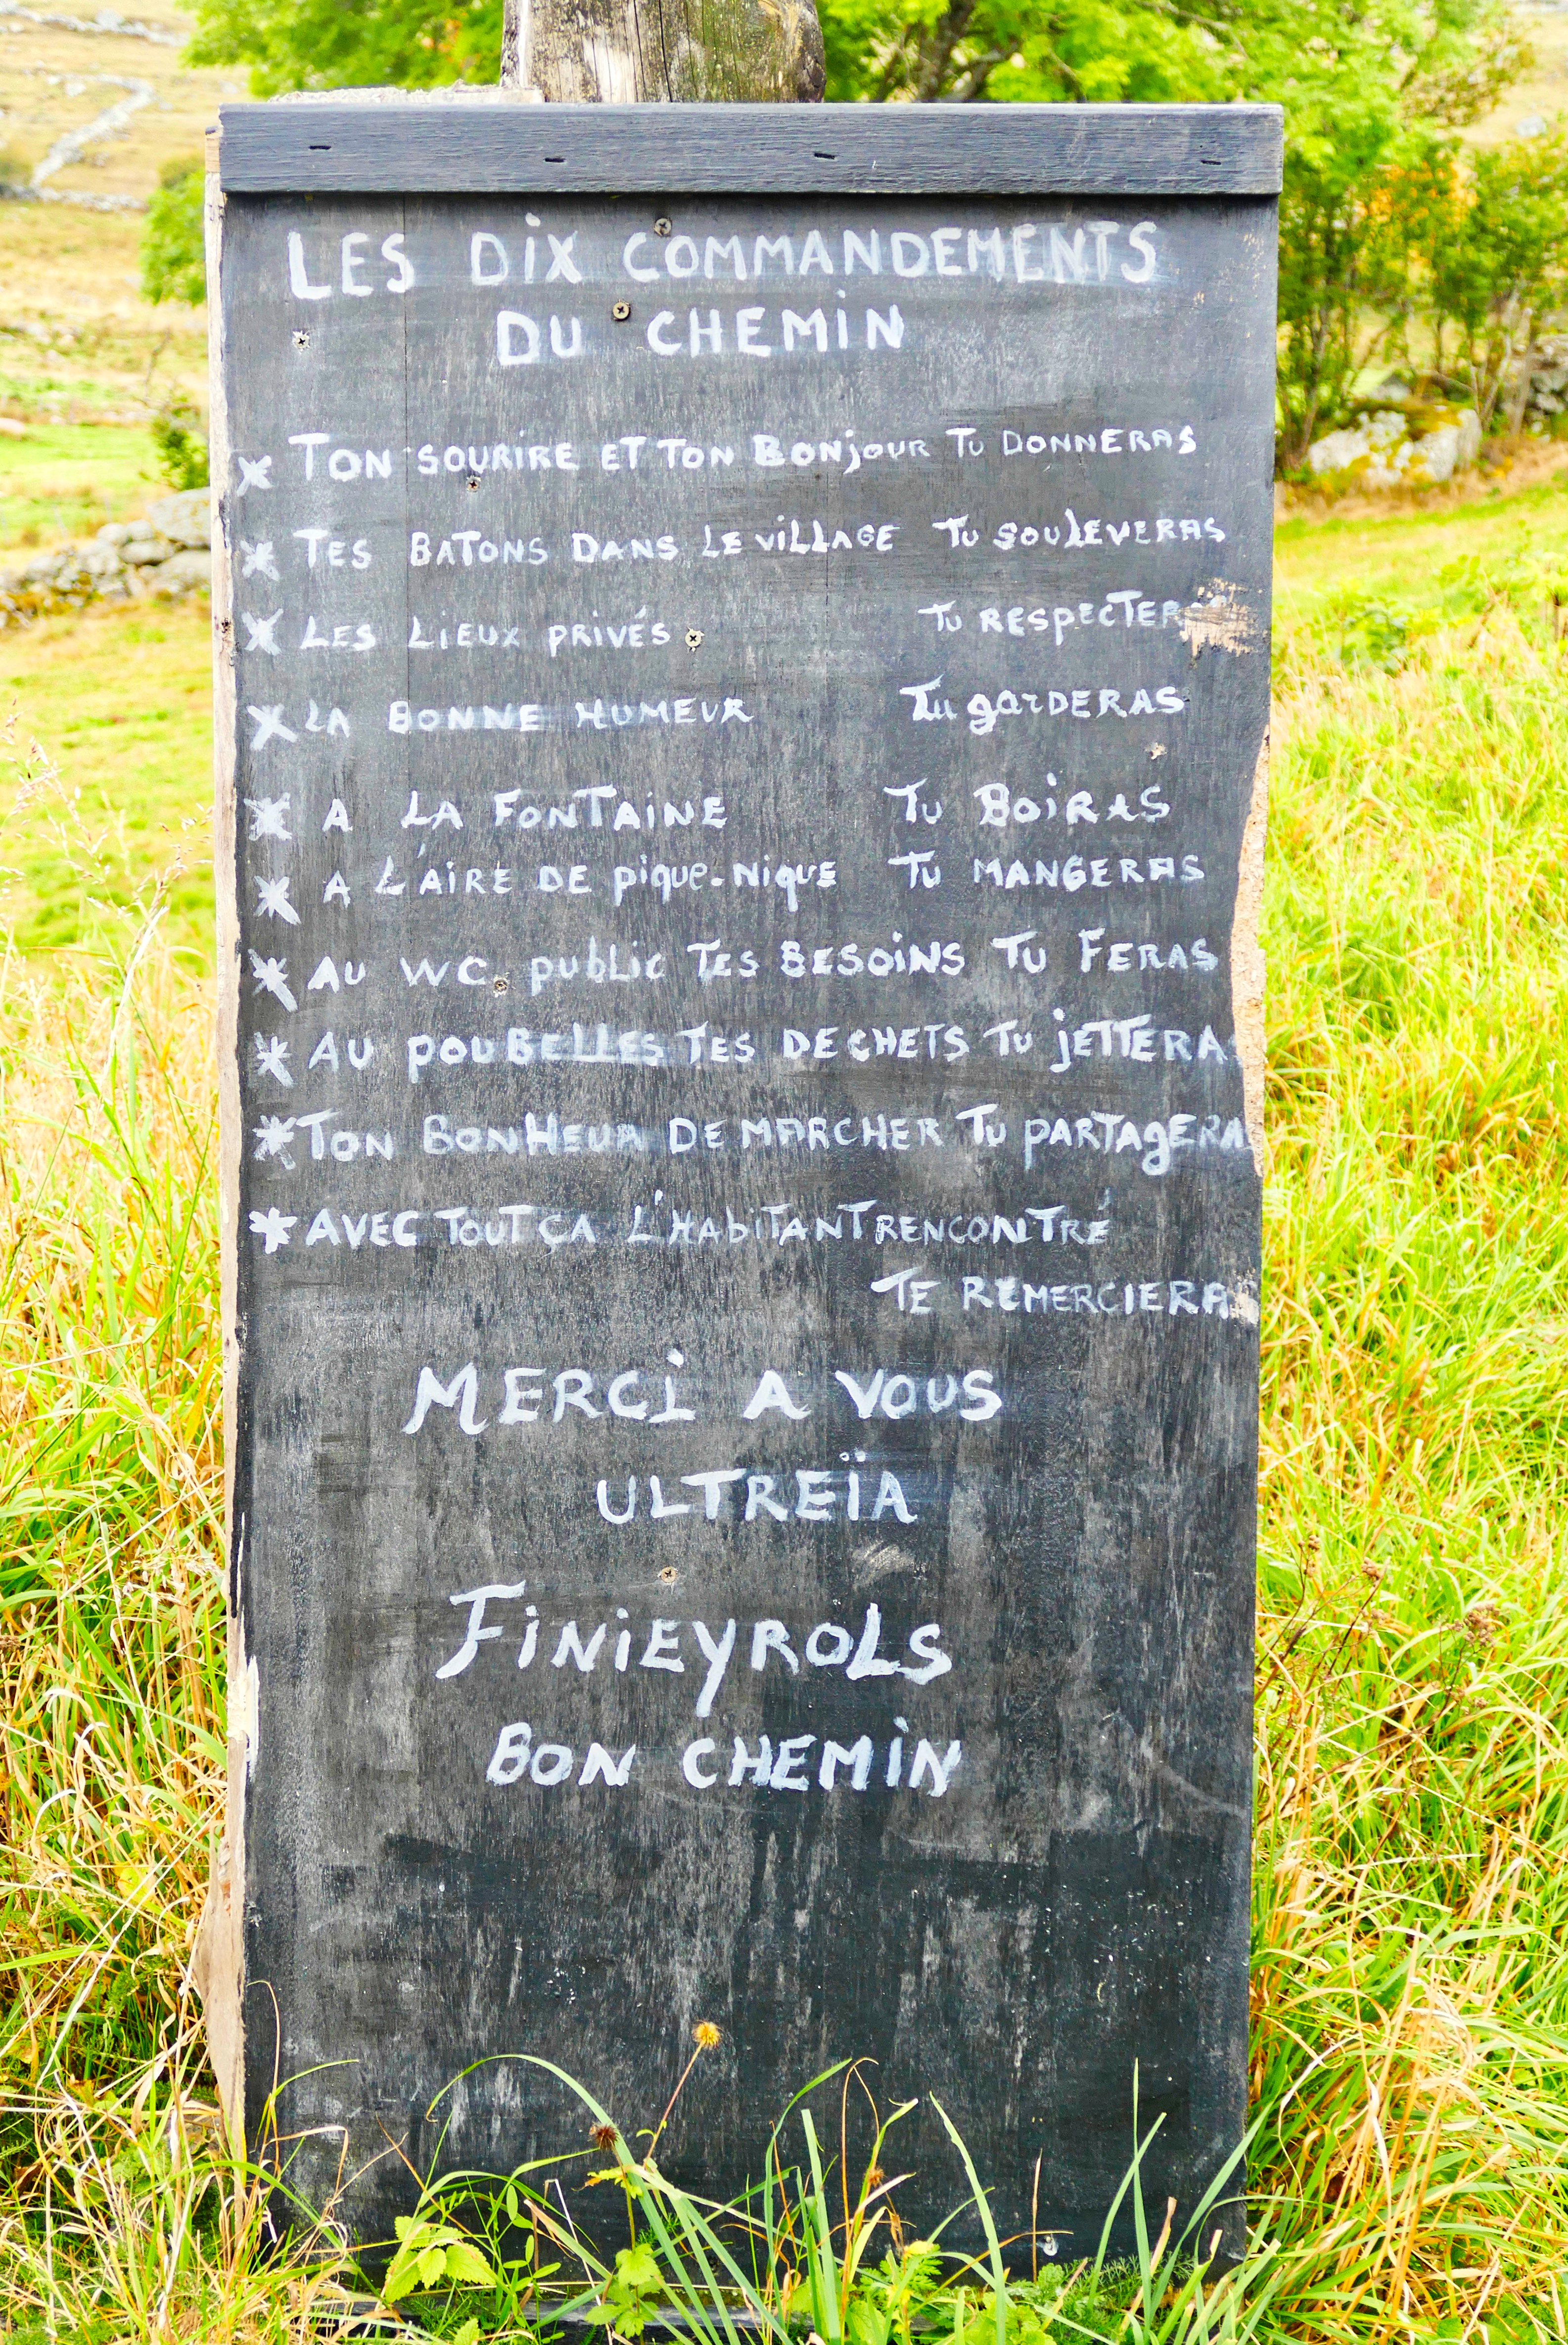 LES DIX COMMANDEMENTS
DU CHEMIN
* TON SOURIRE ET TON BONJOUR TU DONNERAS
* TES BATONS DANS LE VILLAGE TU SOULEVERAS
* LES LIEUX PRIVÉS TU RESPECTER
* LA BONNE HUMEUR TU GARDERAS
* A LA FONTAINE TU BOIRAS
* A L'AIRE DE PIQUE-NIQUE TU MANGERAS
* AU WC PUBLIC TES BESOINS TU FERAS
* AU POUBELLES TES DECHETS TU JETTERAS
* TON BONHEUR DE MARCHER TU PARTAGERA
* AVEC TOUT ÇA L'HABITANT RENCONTRÉ
TE REMERCIERA
MERCI A VOUS
ULTREÏA
FINIEYROLS
BON CHEMIN